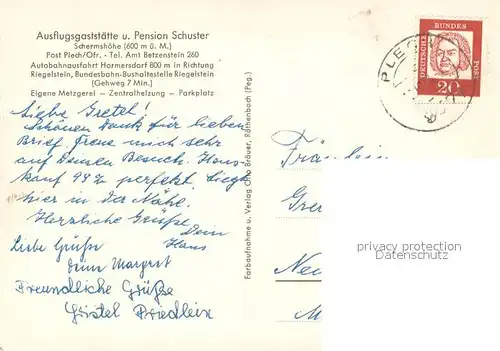 Ausflugsgaststätte u. Pension Schuster
Schermshöhe (600 m ü. M.)
Post Plech/Ofr. - Tel. Amt Betzenstein 260
Autobahnausfahrt Hormersdorf 800 m in Richtung
Riegelstein, Bundesbahn-Bushaltestelle Riegelstein
(Gehweg 7 Min.)
Eigene Metzgerei — Zentralheizung — Parkplatz
Liebe Gretel!
Schönen Dank für lieben
Brief. Freue mich sehr
auf Deinen Besuch. Haus-
kauf 99% perfekt. Liegt
hier in der Nähe.
Herzliche Grüße
Dein
Hans
Liebe Grüße
Deine Margret
Freundliche Grüße
Gistel Friedlein
Farbaufnahme u. Verlag Otto Bräuer, Röthenbach (Peg.)
PLECH
DEUTSCHE
BUNDES
POST
20
Fräulein
Gre
Neu
M
privacy protection
oldthing.de